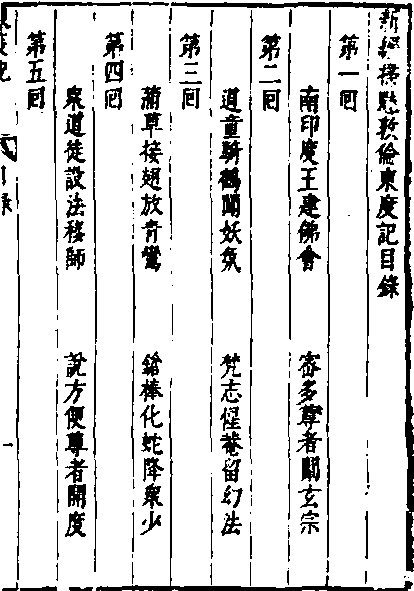 新編掃魅敦倫東度記目錄
第一回
南印度王建佛會　密多尊者闡玄宗
第二回
道童騎鶴闖妖氛　梵志惺菴留幻法
第三回
蒲草接翅放青鸞　鎗棒化蛇降衆少
第四回
衆道徒設法移師　說方便尊者開度
第五回
東度記　目錄　一